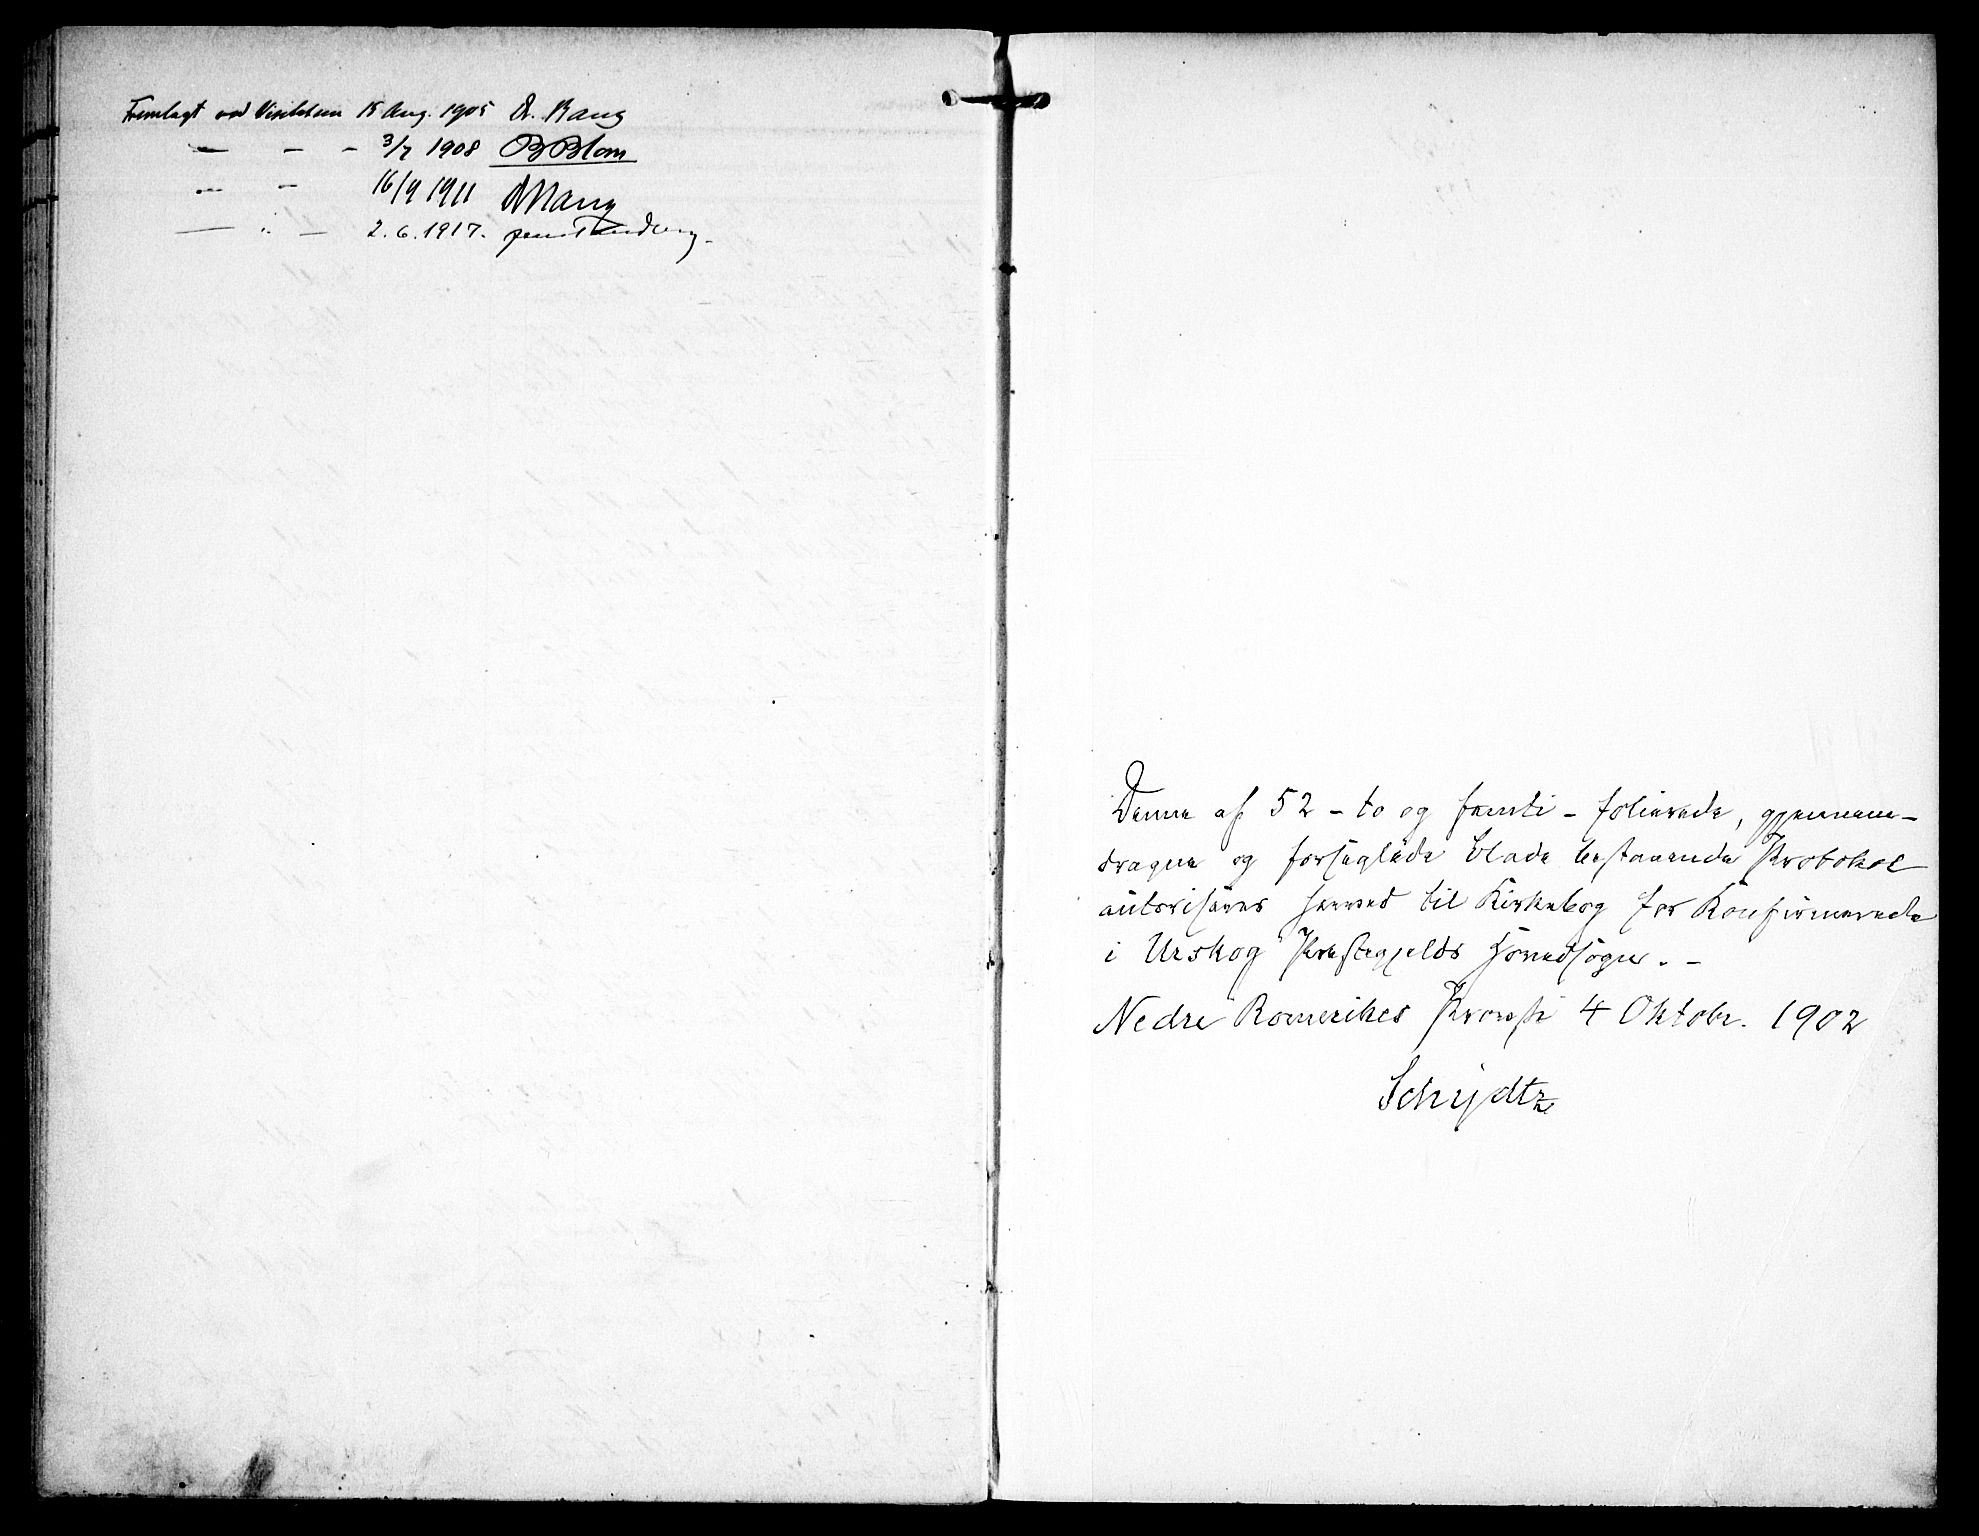 Fremlagt ved Visitatsen 15 Aug. 1905 A. Bang
— - - 3/7 1908 B Blom
— - 16/9 1911 A Bang
— " — 2. 6. 1917. Jens Tandberg.
Denne af 52 - to og femti - folierede, gjennem-
dragne og forseglede blade bestaaende Protokol
autoriseres herved til Kirkebog for Konfirmerede
i Urskog Præstegjelds Hovedsogn. -
Nedre Romerikes Provsti 4 Oktobr. 1902
Schydtz